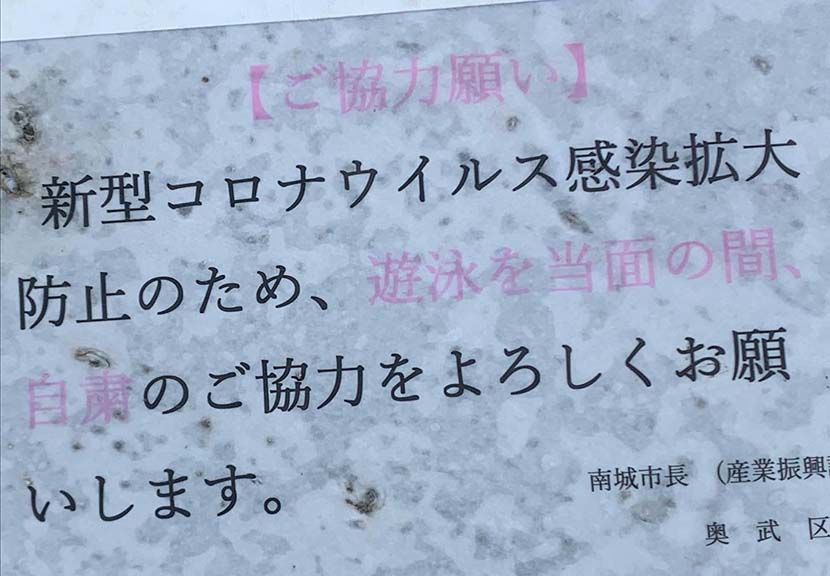 【ご協力願い】
新型コロナウイルス感染拡大
防止のため、遊泳を当面の間、
自粛のご協力をよろしくお願
いします。
南城市長 （産業振興
奥武区